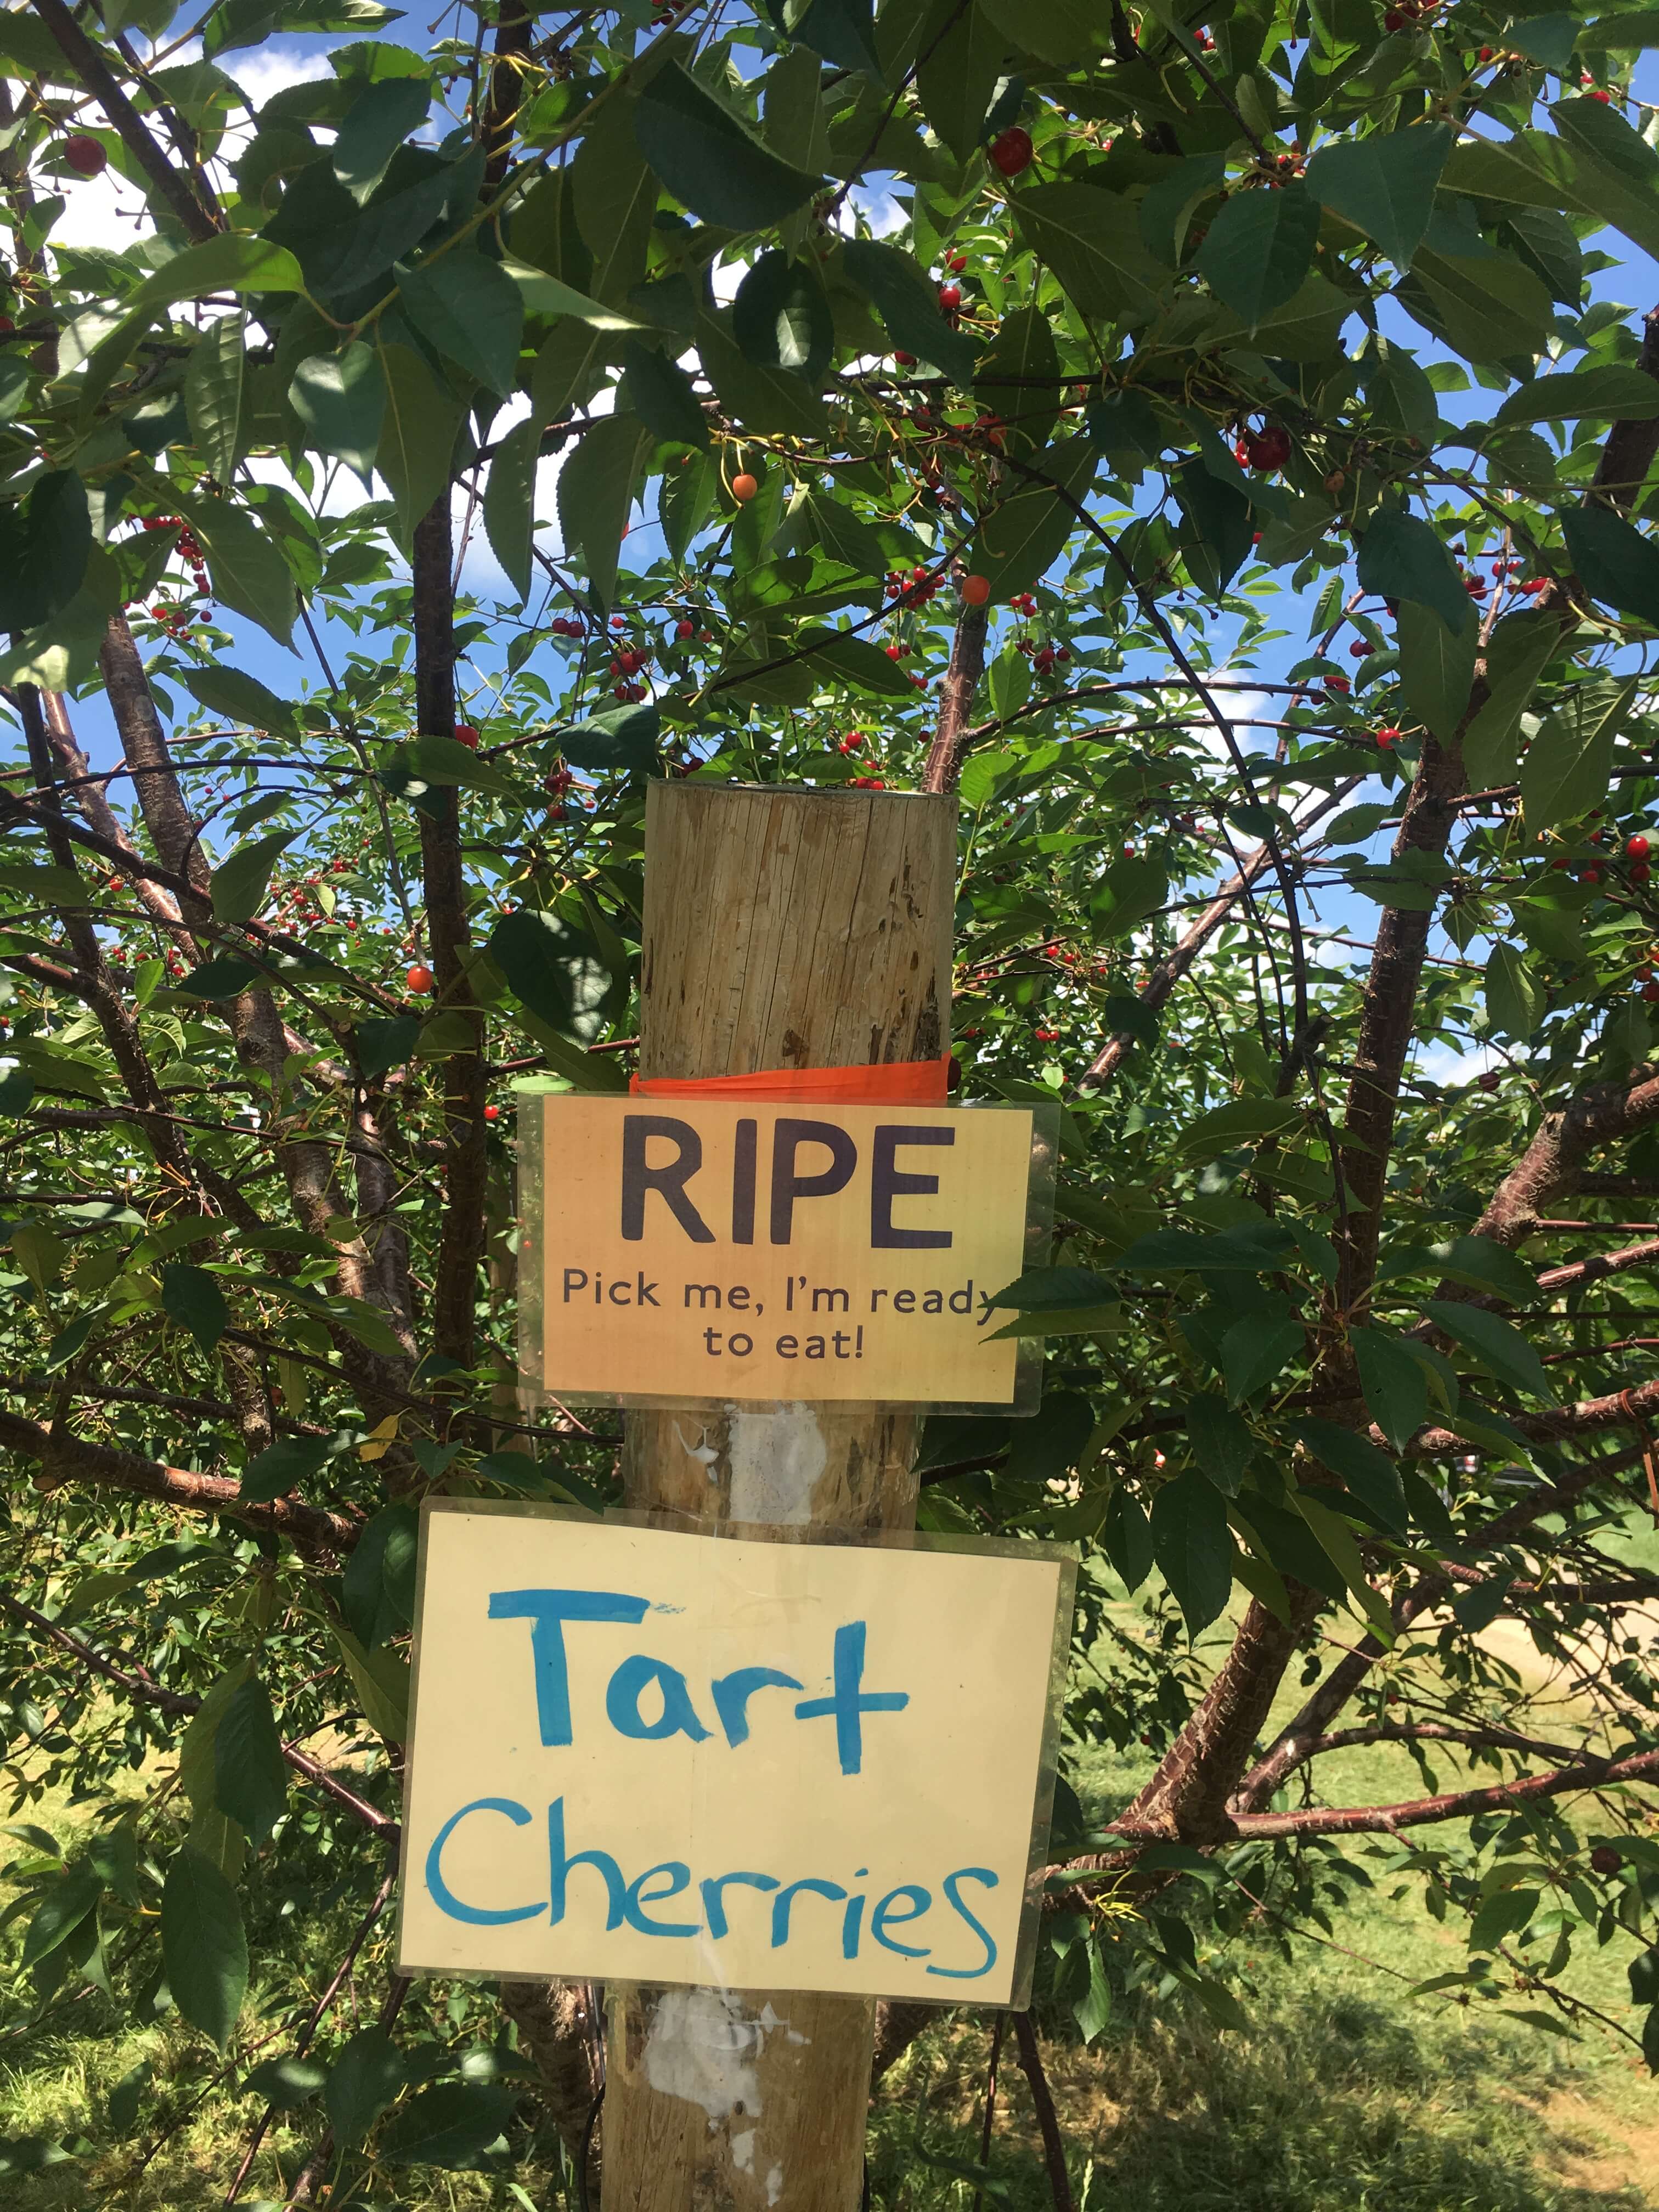 RIPE
Pick me, I'm ready
to eat!
Tart
Cherries